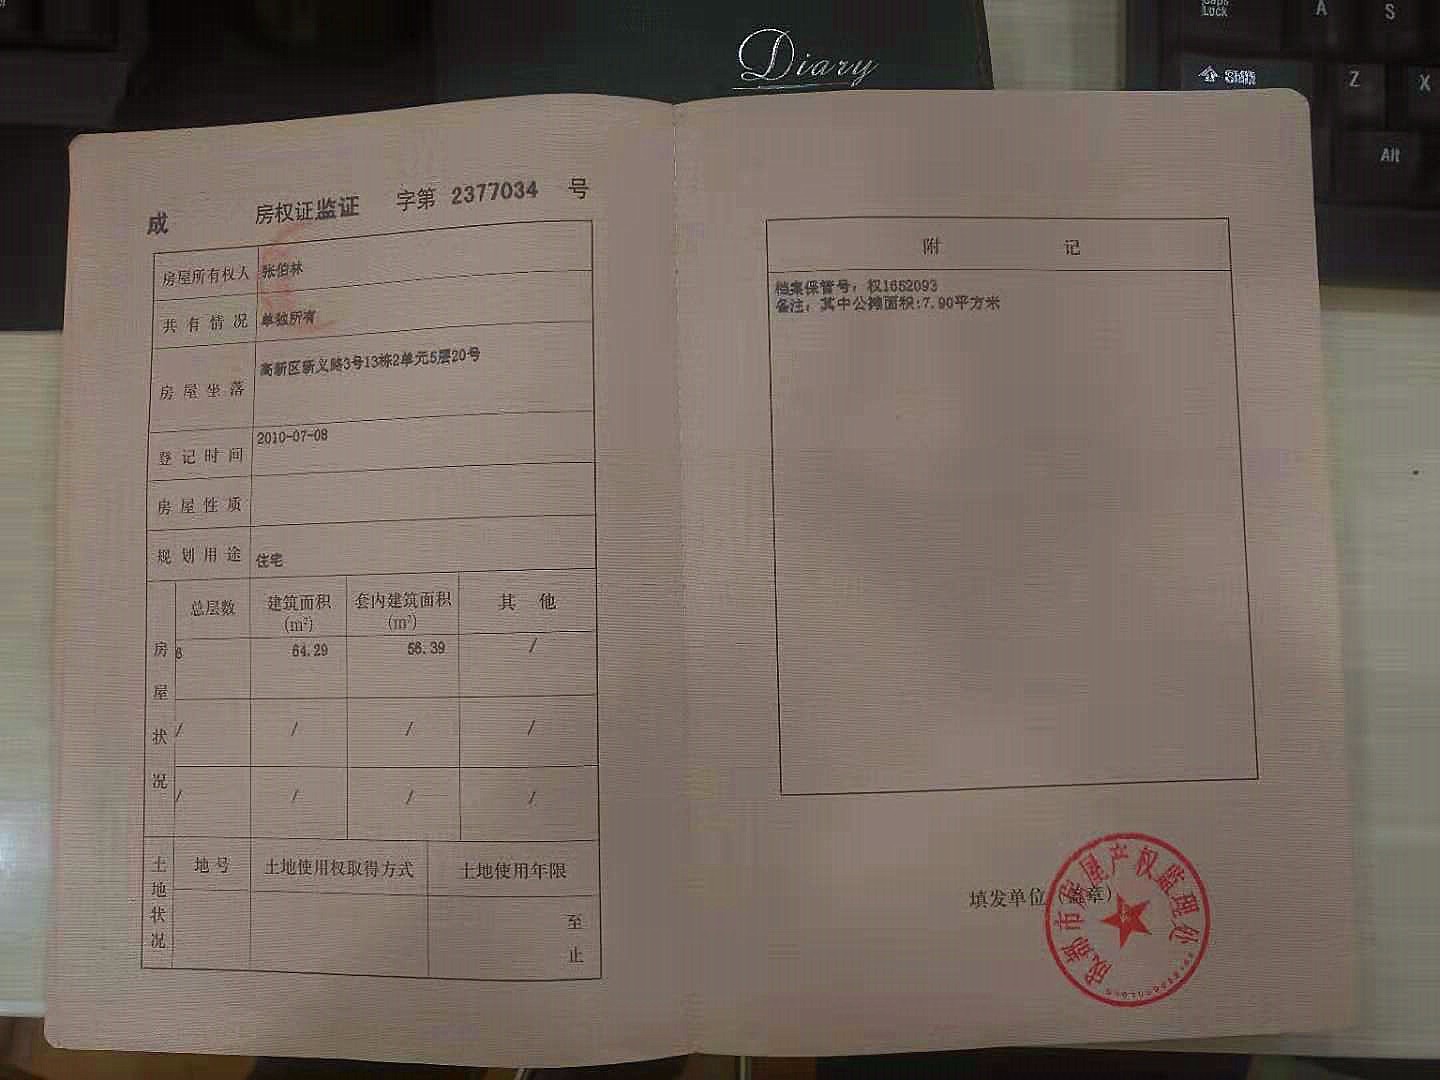 Diary
Caps Lock
A
S
Shift
Z
X
Alt
成 房权证监证 字第 2377034 号
房屋所有权人 张伯林
共有情况 单独所有
房屋坐落 高新区新义路3号13栋2单元5层20号
登记时间 2010-07-08
房屋性质
规划用途 住宅
房屋状况
总层数 建筑面积(m²) 套内建筑面积(m²) 其他
6 64.29 56.39 /
/ / / /
/ / / /
土地状况
地号 土地使用权取得方式 土地使用年限
至
止
附 记
档案保管号：权1652093
备注：其中公摊面积:7.90平方米
填发单位（盖章）
成都市房屋产权监理处